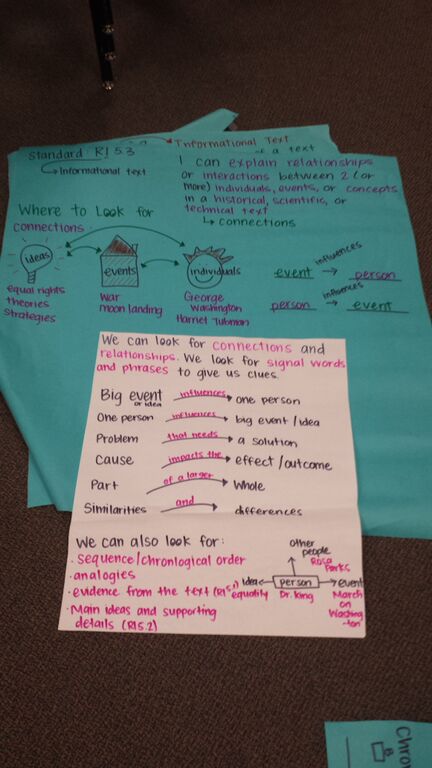 Informational Text
of a text
Standard: RI 5.3
Informational text
I can explain relationships
or interactions between 2 (or
more) individuals, events, or concepts
in a historical, scientific, or
technical text
connections
Where to Look for
connections
ideas
events
individuals
equal rights
theories
strategies
War
moon landing
George
Washington
Harriet Tubman
event influences person
person influences event
We can look for connections and
relationships. We look for signal words
and phrases to give us clues.
Big event influences one person
or idea
One person influences big event/idea
Problem that needs a solution
Cause impacts the effect/outcome
Part of a larger Whole
Similarities and differences
We can also look for:
· sequence/chronlogical order
· analogies
· evidence from the text (RI5.1)
· Main ideas and supporting
details (RI5.2)
other
people
Rosa
Parks
Idea
equality
person
Dr. King
event
March
on
Washing
-ton
Chro